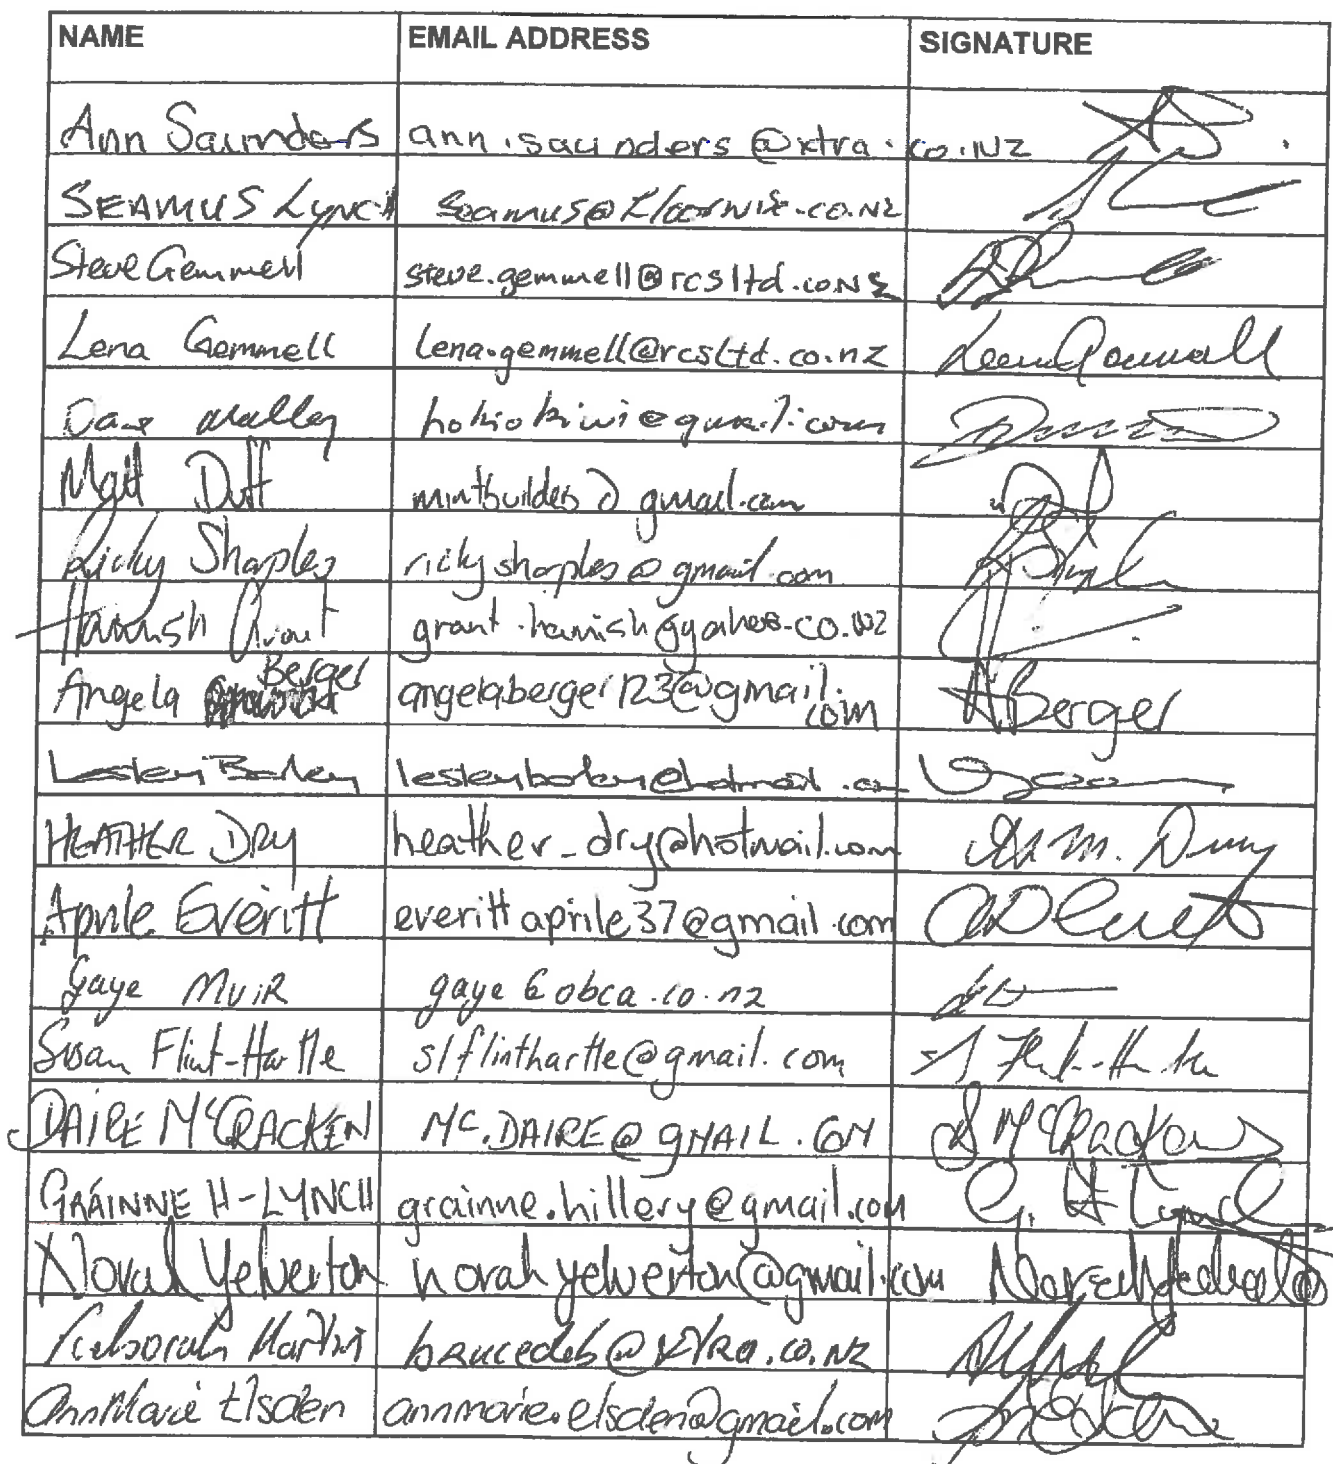 NAME EMAIL ADDRESS SIGNATURE
Ann Saunders ann.saunders@xtra.co.NZ
SEAMUS LYNCH seamus@floorwise.co.NZ
Steve Gemmell steve.gemmell@rcsltd.co.NZ
Lena Gemmell lena.gemmell@rcsltd.co.nz Lena Gemmell
Dave Malley hokiokiwi@gmail.com
Matt Duff mintbuilders@gmail.com
Ricky Sharples rickysharples@gmail.com
Hamish Grant grant.hamish@yahoo.co.NZ
Berger
Angela angelaberger123@gmail. ABerger
com
Lesley
HEATHER DRY heather_dry@hotmail.com
Aprile Everitt everittaprile37@gmail.com
Gaye MUIR gaye@obca.co.nz
Susan Flint-Hartle slflinthartle@gmail.com
DAIRE McCRACKEN Mc.DAIRE@GMAIL.COM McCracken
GRÁINNE H-LYNCH grainne.hillery@gmail.com G. H Lynch
Norah Yelverton norahyelverton@gmail.com
Deborah Martin brucedeb@xtra.co.NZ
AnnMarie Elsden annmarie.elsden@gmail.com